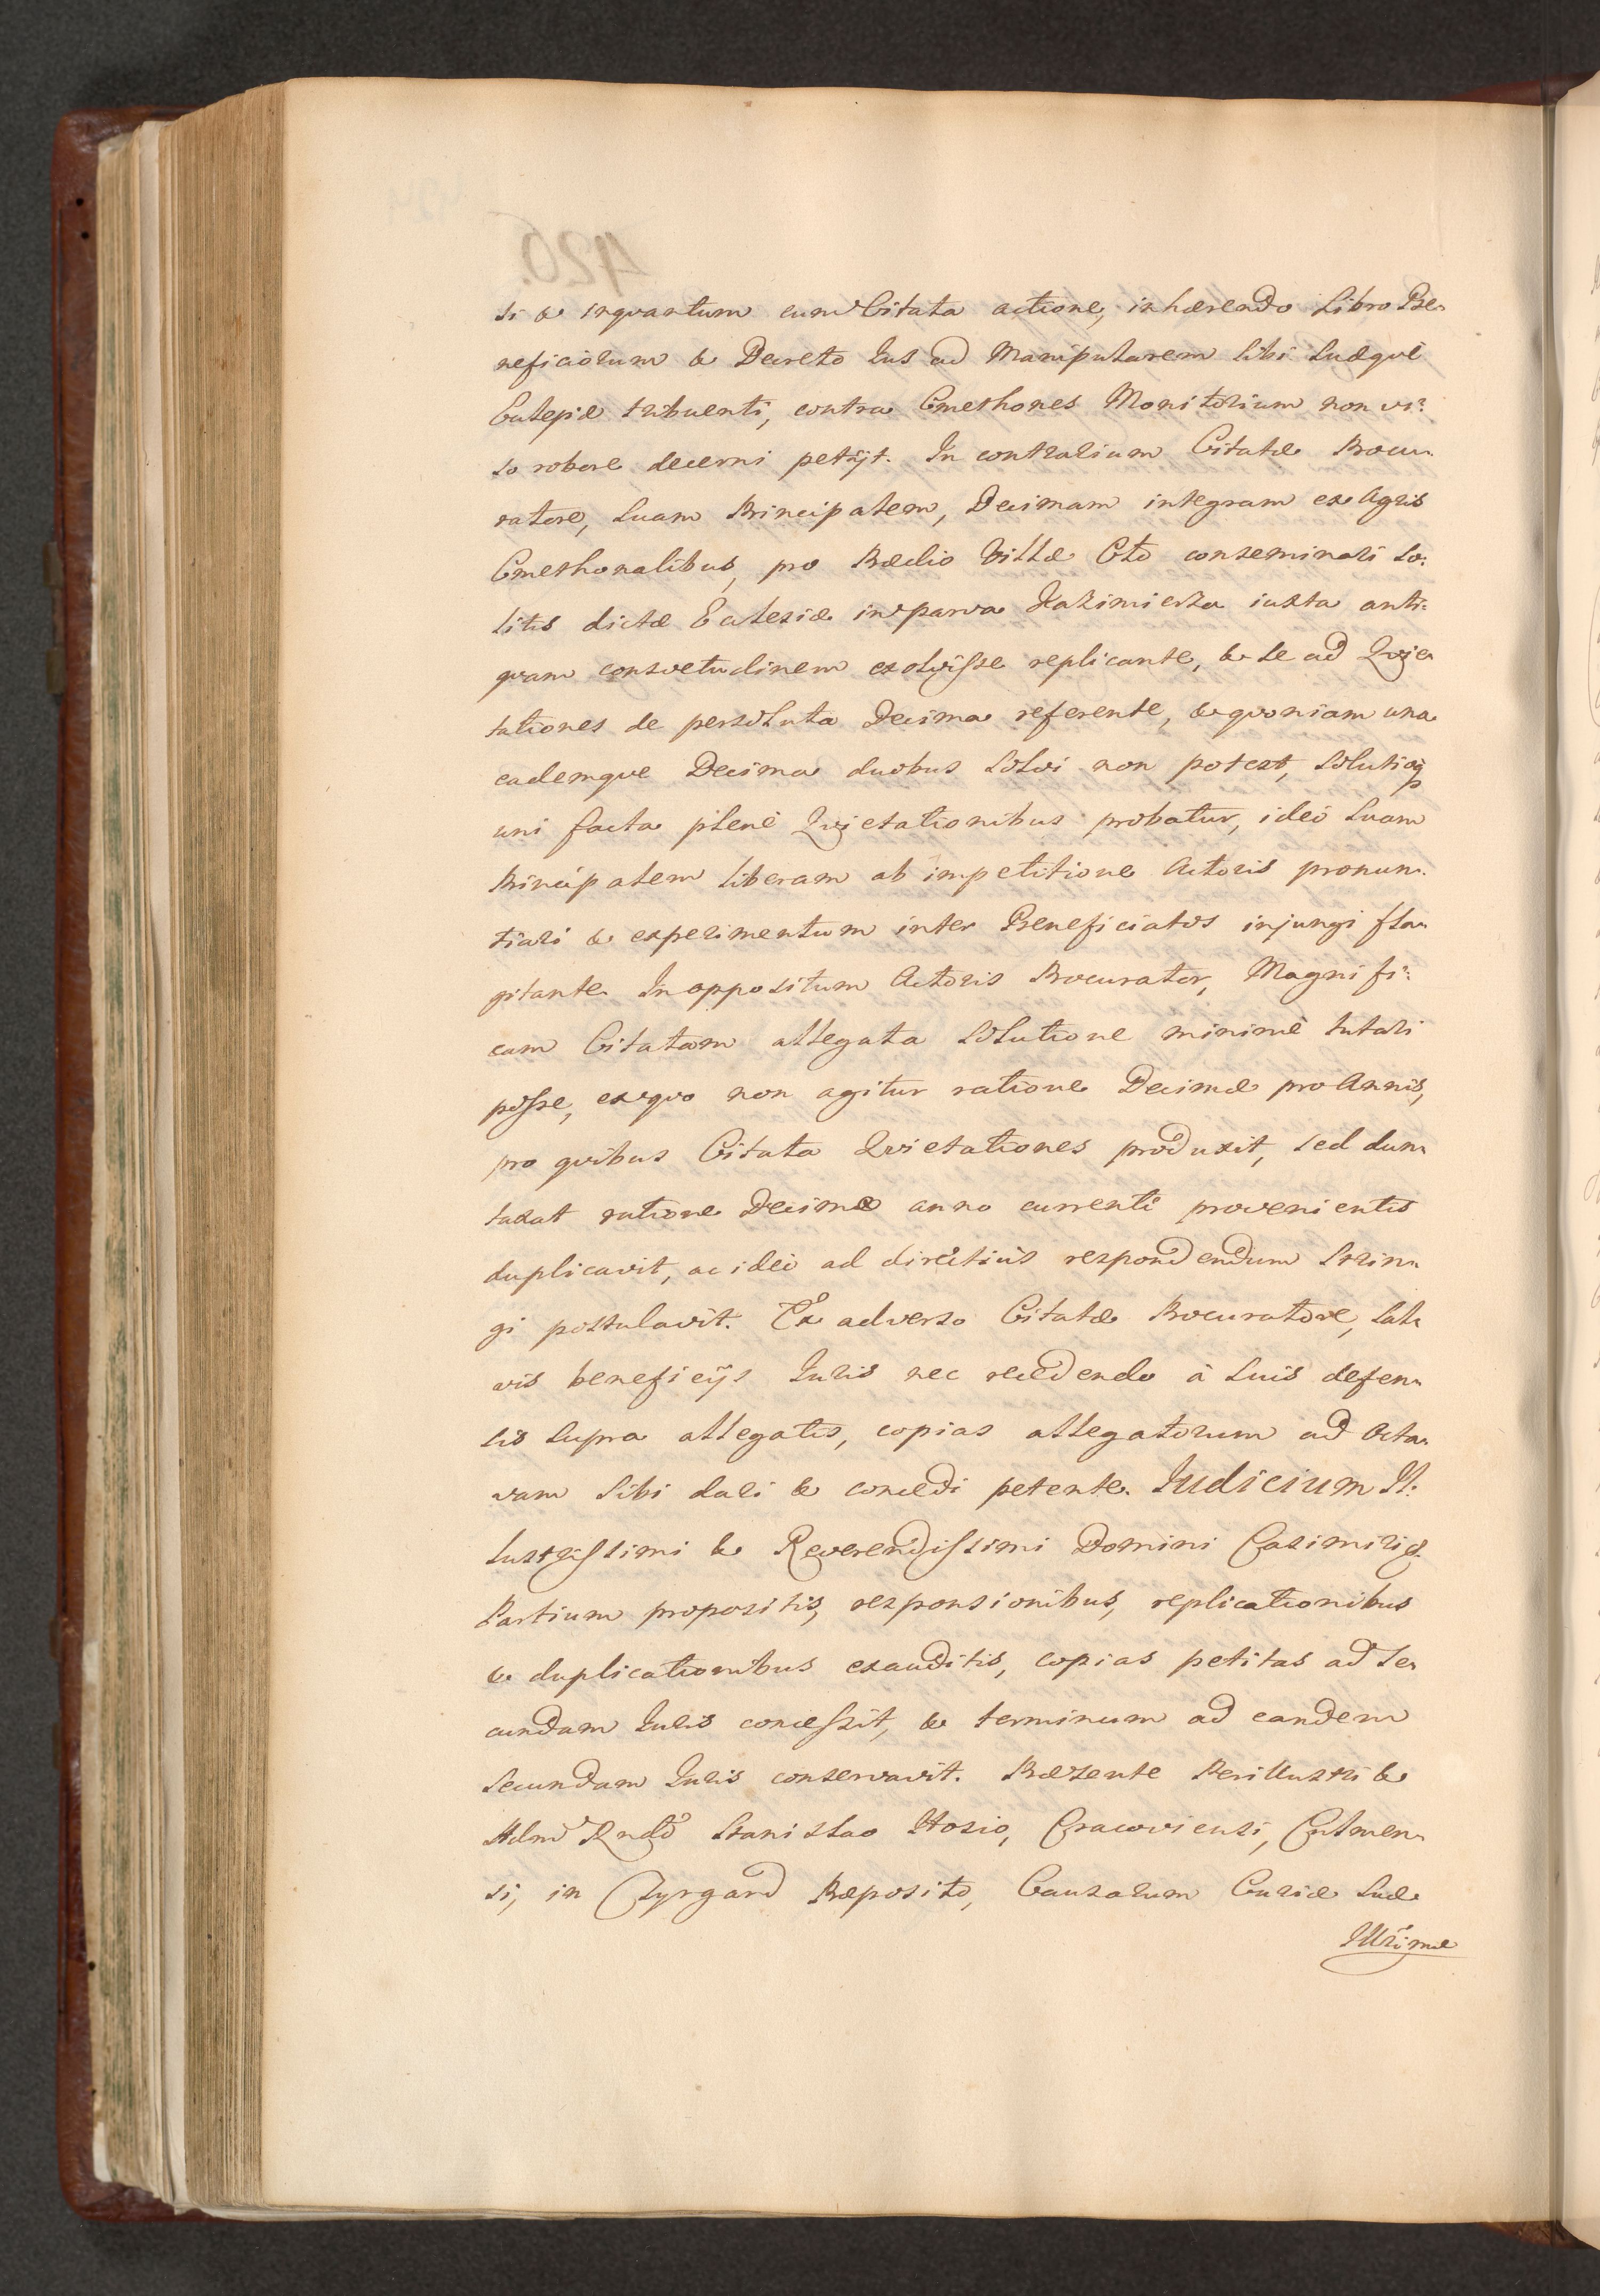 si & inqvantum cum Citata actione, inhærendo Libro Be-
neficiorum & Decreto Ius ad Manipularem sibi suæqve
Eclesiæ tribuenti, contra Cmethones Monitorium non vi-
so robore decerni petijt. In contrarium Citatæ Procu-
ratore, suam Principalem, Decimam integram ex Agris
Cmethonalibus, pro Prædio Villæ Cło conseminari so-
litis dictæ Eclesiæ in parva Kazimierza iuxta anti-
qvam consvetudinem exolvisse replicante, & se ad Qvie-
tationes de persoluta Decima referente, & qvoniam una
eademqve Decima duobus solvi non potest, solutioq
uni facta plenè Qvietationibus probatur, ideò suam
Principalem liberam ab impetitione Actoris pronun-
tiari & experimentum inter Beneficiatos injungi fla-
gitante. In oppositum Actoris Procurator, Magnifi-
cam Citatam allegata solutione minimè tutari
posse, ex qvo non agitur ratione Decimæ pro Annis,
pro qvibus Citata Qvietationes produxit, sed dun-
taxat ratione Decimæ anno currenti provenientis
duplicavit, ac ideò ad directiùs respondendum strin-
gi postulavit. Ex adverso Citatæ Procuratore, sal-
vis beneficijs Iuris nec recedendo à suis defen-
sis supra allegatis, copias allegatorum ad Octa-
vam sibi dari & concedi petente. Iudicium Il-
lustrissimi & Reverendissimi Domini Casimiri
Partium propositis, responsionibus, replicationibus
& duplicationibus exauditis, copias petitas ad se-
cundam Iuris concessit, & terminum ad eandem
secundam Iuris conservavit. Præsente Perillustri &
Adm Rndo Stanislao Hosio, Cracoviensi, Culmen-
si, in Czyrgard Præposito, Causarum Curiæ suæ
Illrimæ